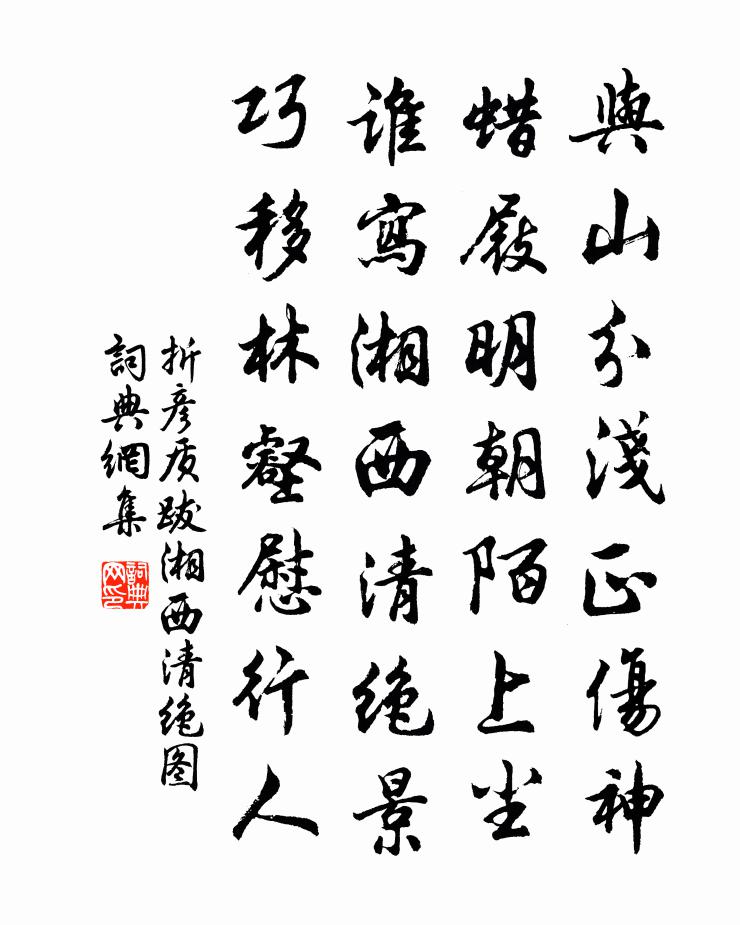 與山分淺正傷神
蜡屐明朝陌上尘
谁寫湘西清绝景
巧移林壑慰行人
折彦质跋湘西清绝图
詞典網集
詞典网印